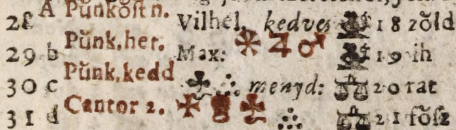 28 A Půnkőſt n. Vilhel. kedves 18 zőld
29 b Půnk. her. Max: 19 ih
30 c Půnk. kedd menyd: 20 rat
31 d Cantor 2. 21 főſz